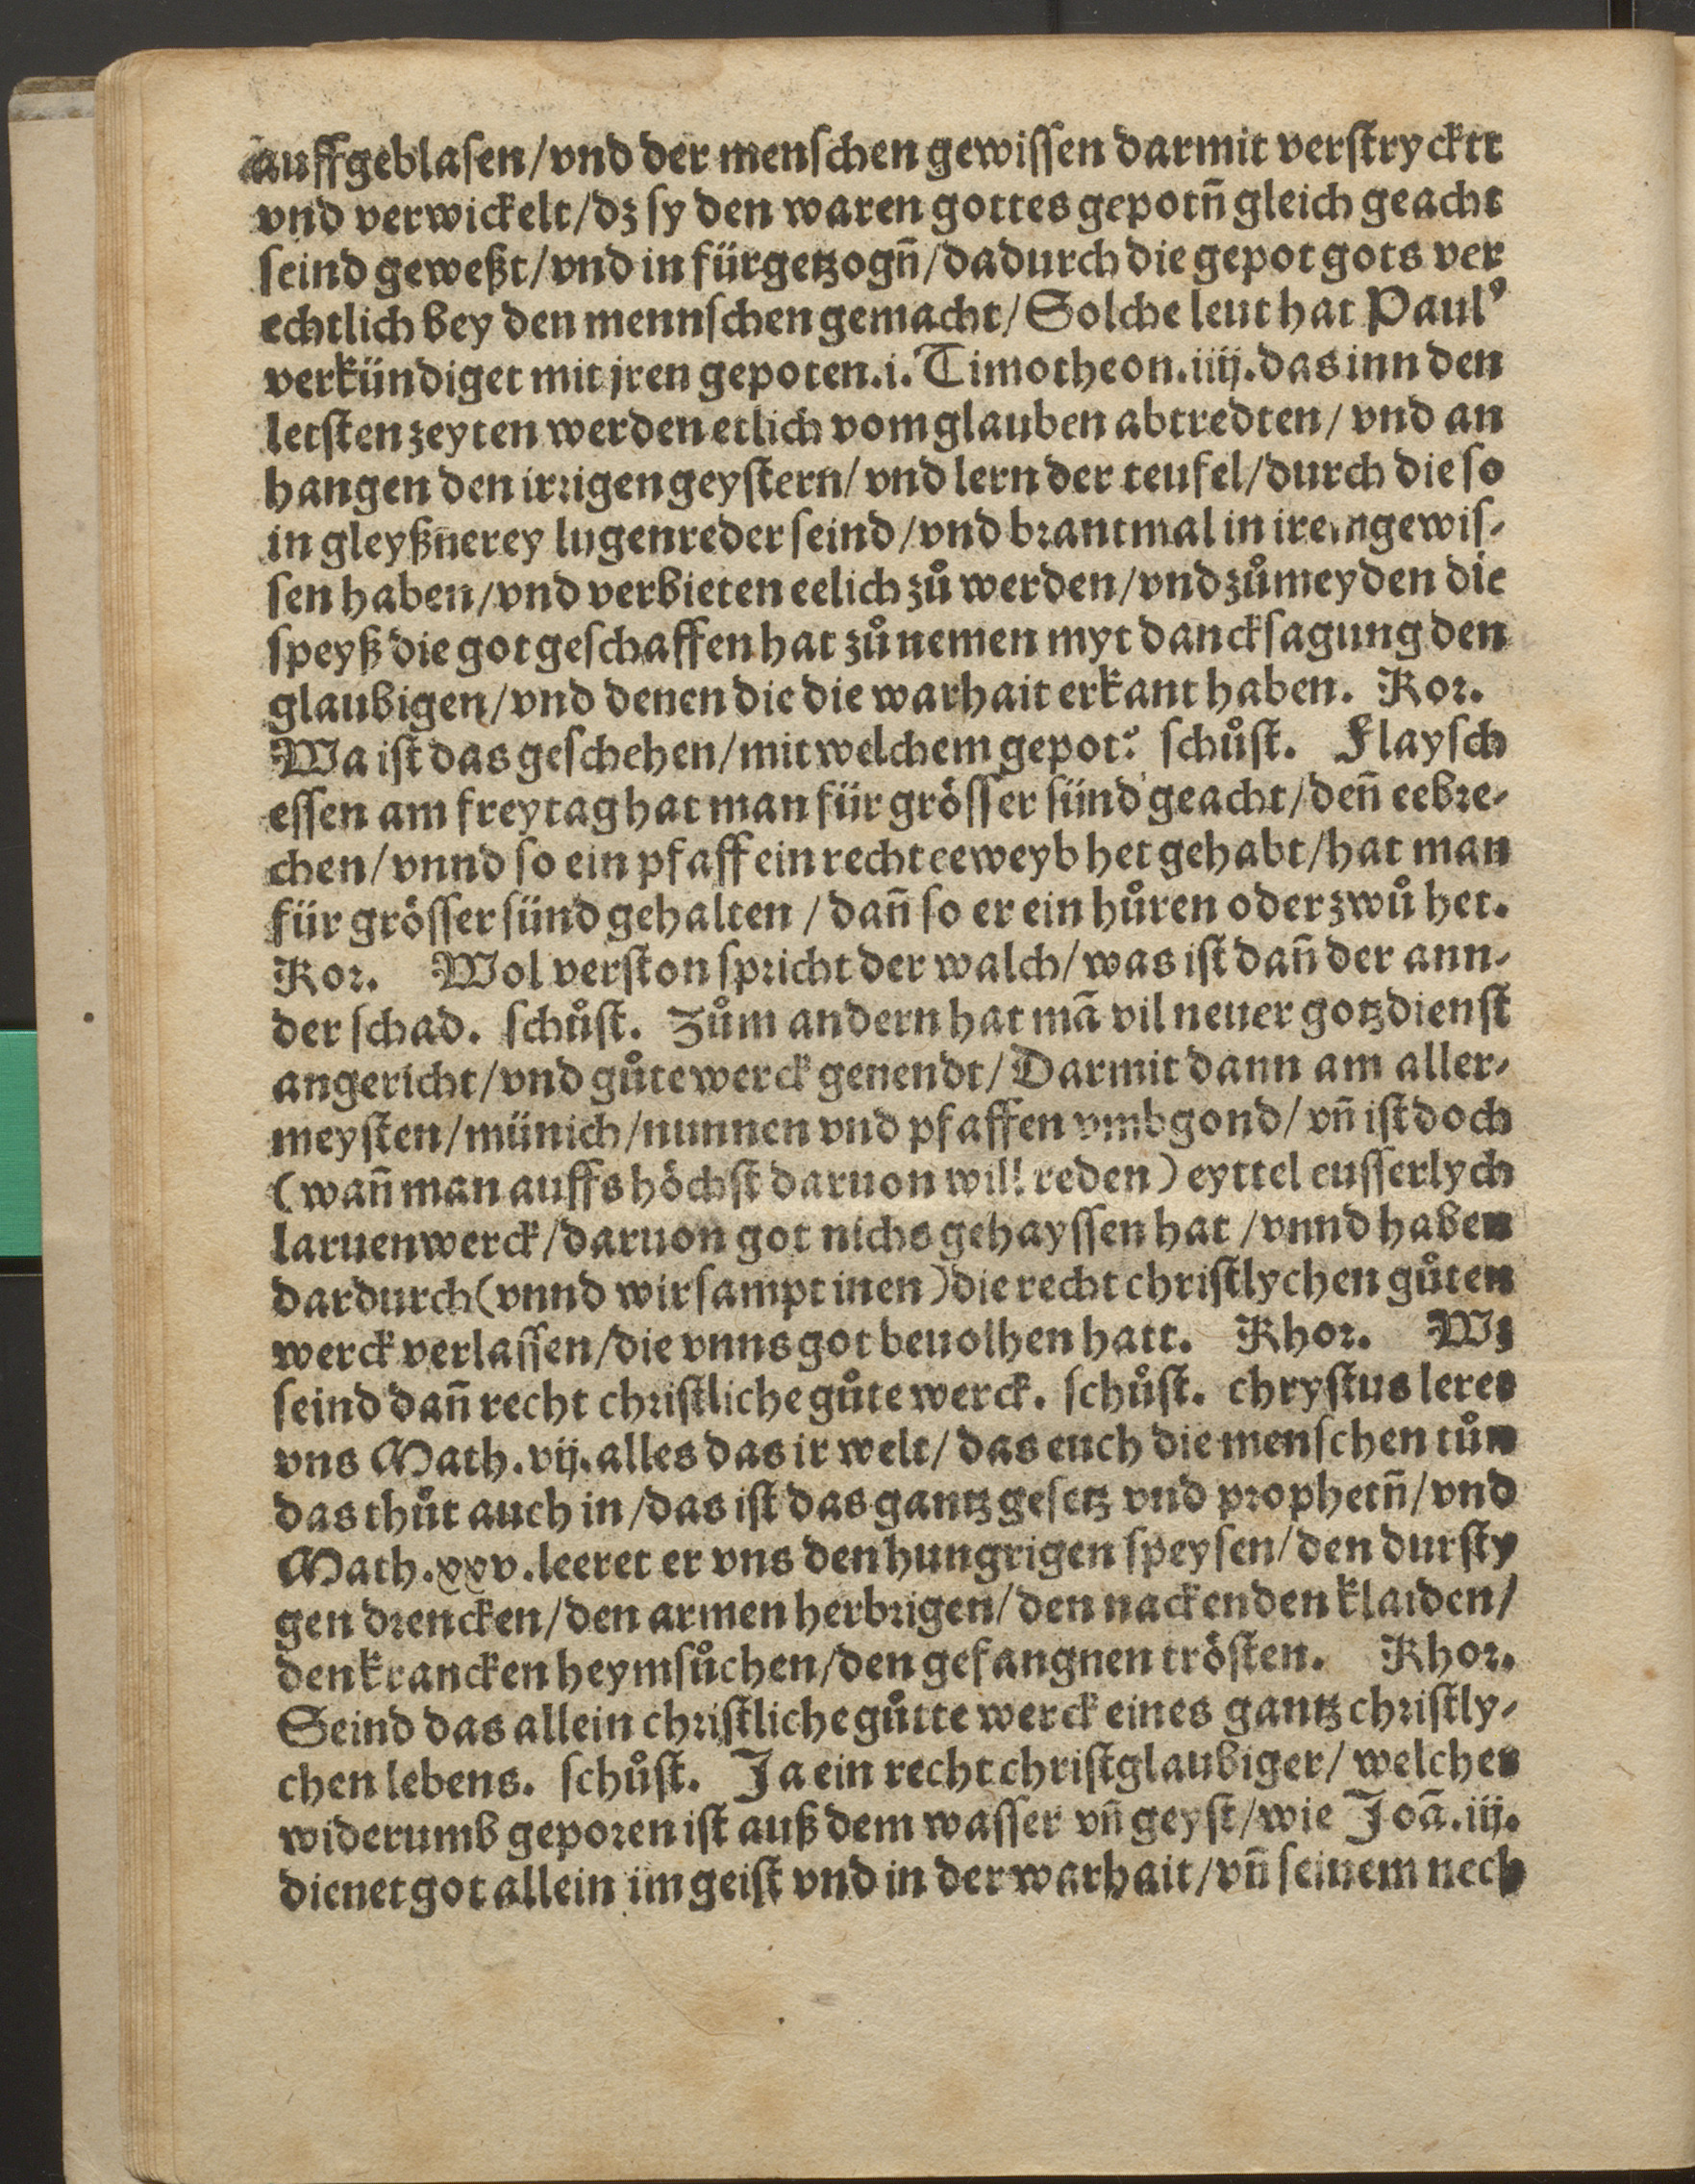 auffgeblasen/vnd der menschen gewissen darmit verstrycktt
vnd verwickelt/dz sy den waren gottes gepotn̄ gleich geacht
seind geweßt/vnd in fürgetzogn̄/dadurch die gepot gots ver
echtlich bey den mennschen gemacht/Solche leut hat Paulꝰ
verkündiget mit jren gepoten.i.Timotheon.iiij.das inn den
letsten zeyten werden etlich vom glauben abtredten/ vnd an
hangen den irrigen geystern/ vnd lern der teufel/durch die so
in gleyßn̄erey lugenreder seind/vnd brantmal in irem gewis⸗
sen haben/vnd verbieten eelich zů werden/vnd zůmeyden die
speyß die got geschaffen hat zů nemen myt dancksagung den
glaubigen/vnd denen die die warhait erkant haben. Kor.
Wa ist das geschehen/mit welchem gepot? schůst. Flaysch
essen am freytag hat man für grösser sünd geacht/den̄ eebre⸗
chen/vnnd so ein pfaff ein recht eeweyb het gehabt/hat man
für grösser sünd gehalten/dan̄ so er ein hůren oder zwů het.
Kor. Wol verston spricht der walch/was ist dan̄ der ann⸗
der schad. schůst. Zům andern hat mā vil neuer gotzdienst
angericht/vnd gůte werck genendt/Darmit dann am aller⸗
meysten/münich/nunnen vnd pfaffen vmbgond/vn̄ ist doch
(wan̄ man auffs höchst daruon will reden) eyttel eusserlych
laruenwerck/daruon got nichs gehayssen hat/vnnd haben
dardurch (vnnd wir sampt inen) die recht christlychen gůten
werck verlassen/die vnns got beuolhen hatt. Khor. Wz
seind dan̄ recht christliche gůte werck. schůst. chrystus leret
vns Math.vij.alles das ir welt/das euch die menschen tůn
das thůt auch in/das ist das gantz gesetz vnd prophetn̄/vnd
Math.xxv.leeret er vns den hungrigen speysen/den dursty
gen drencken/den armen herbrigen/den nackenden klaiden/
den krancken heymsůchen/den gefangnen trösten. Khor.
Seind das allein christliche gůtte werck eines gantz christly⸗
chen lebens. schůst. Ja ein recht christglaubiger/ welcher
widerumb geporen ist auß dem wasser vn̄ geyst/wie Joā.iij.
dienet got allein im geist vnd in der warhait/vn̄ seinem nech